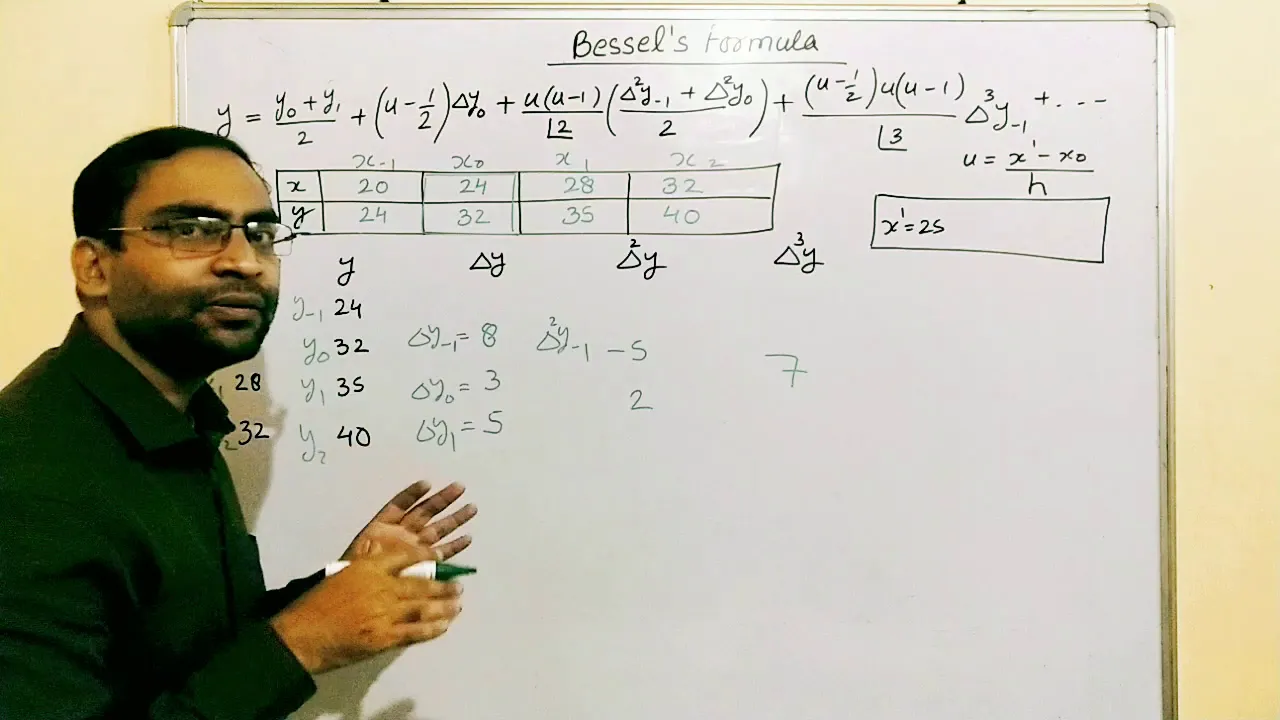 Bessel's Formula
y = (y₀ + y₁)/2 + (u - 1/2)Δy₀ + u(u-1)/⌊2 ((Δ²y₋₁ + Δ²y₀)/2) + (u - 1/2)u(u-1)/⌊3 Δ³y₋₁ + ---
u = (x' - x₀)/h
x₋₁ x₀ x₁ x₂
x 20 24 28 32
y 24 32 35 40
x' = 25
y Δy Δ²y Δ³y
y₋₁ 24
y₀ 32 Δy₋₁ = 8 Δ²y₋₁ -5
28 y₁ 35 Δy₀ = 3 2 7
₂ 32 y₂ 40 Δy₁ = 5